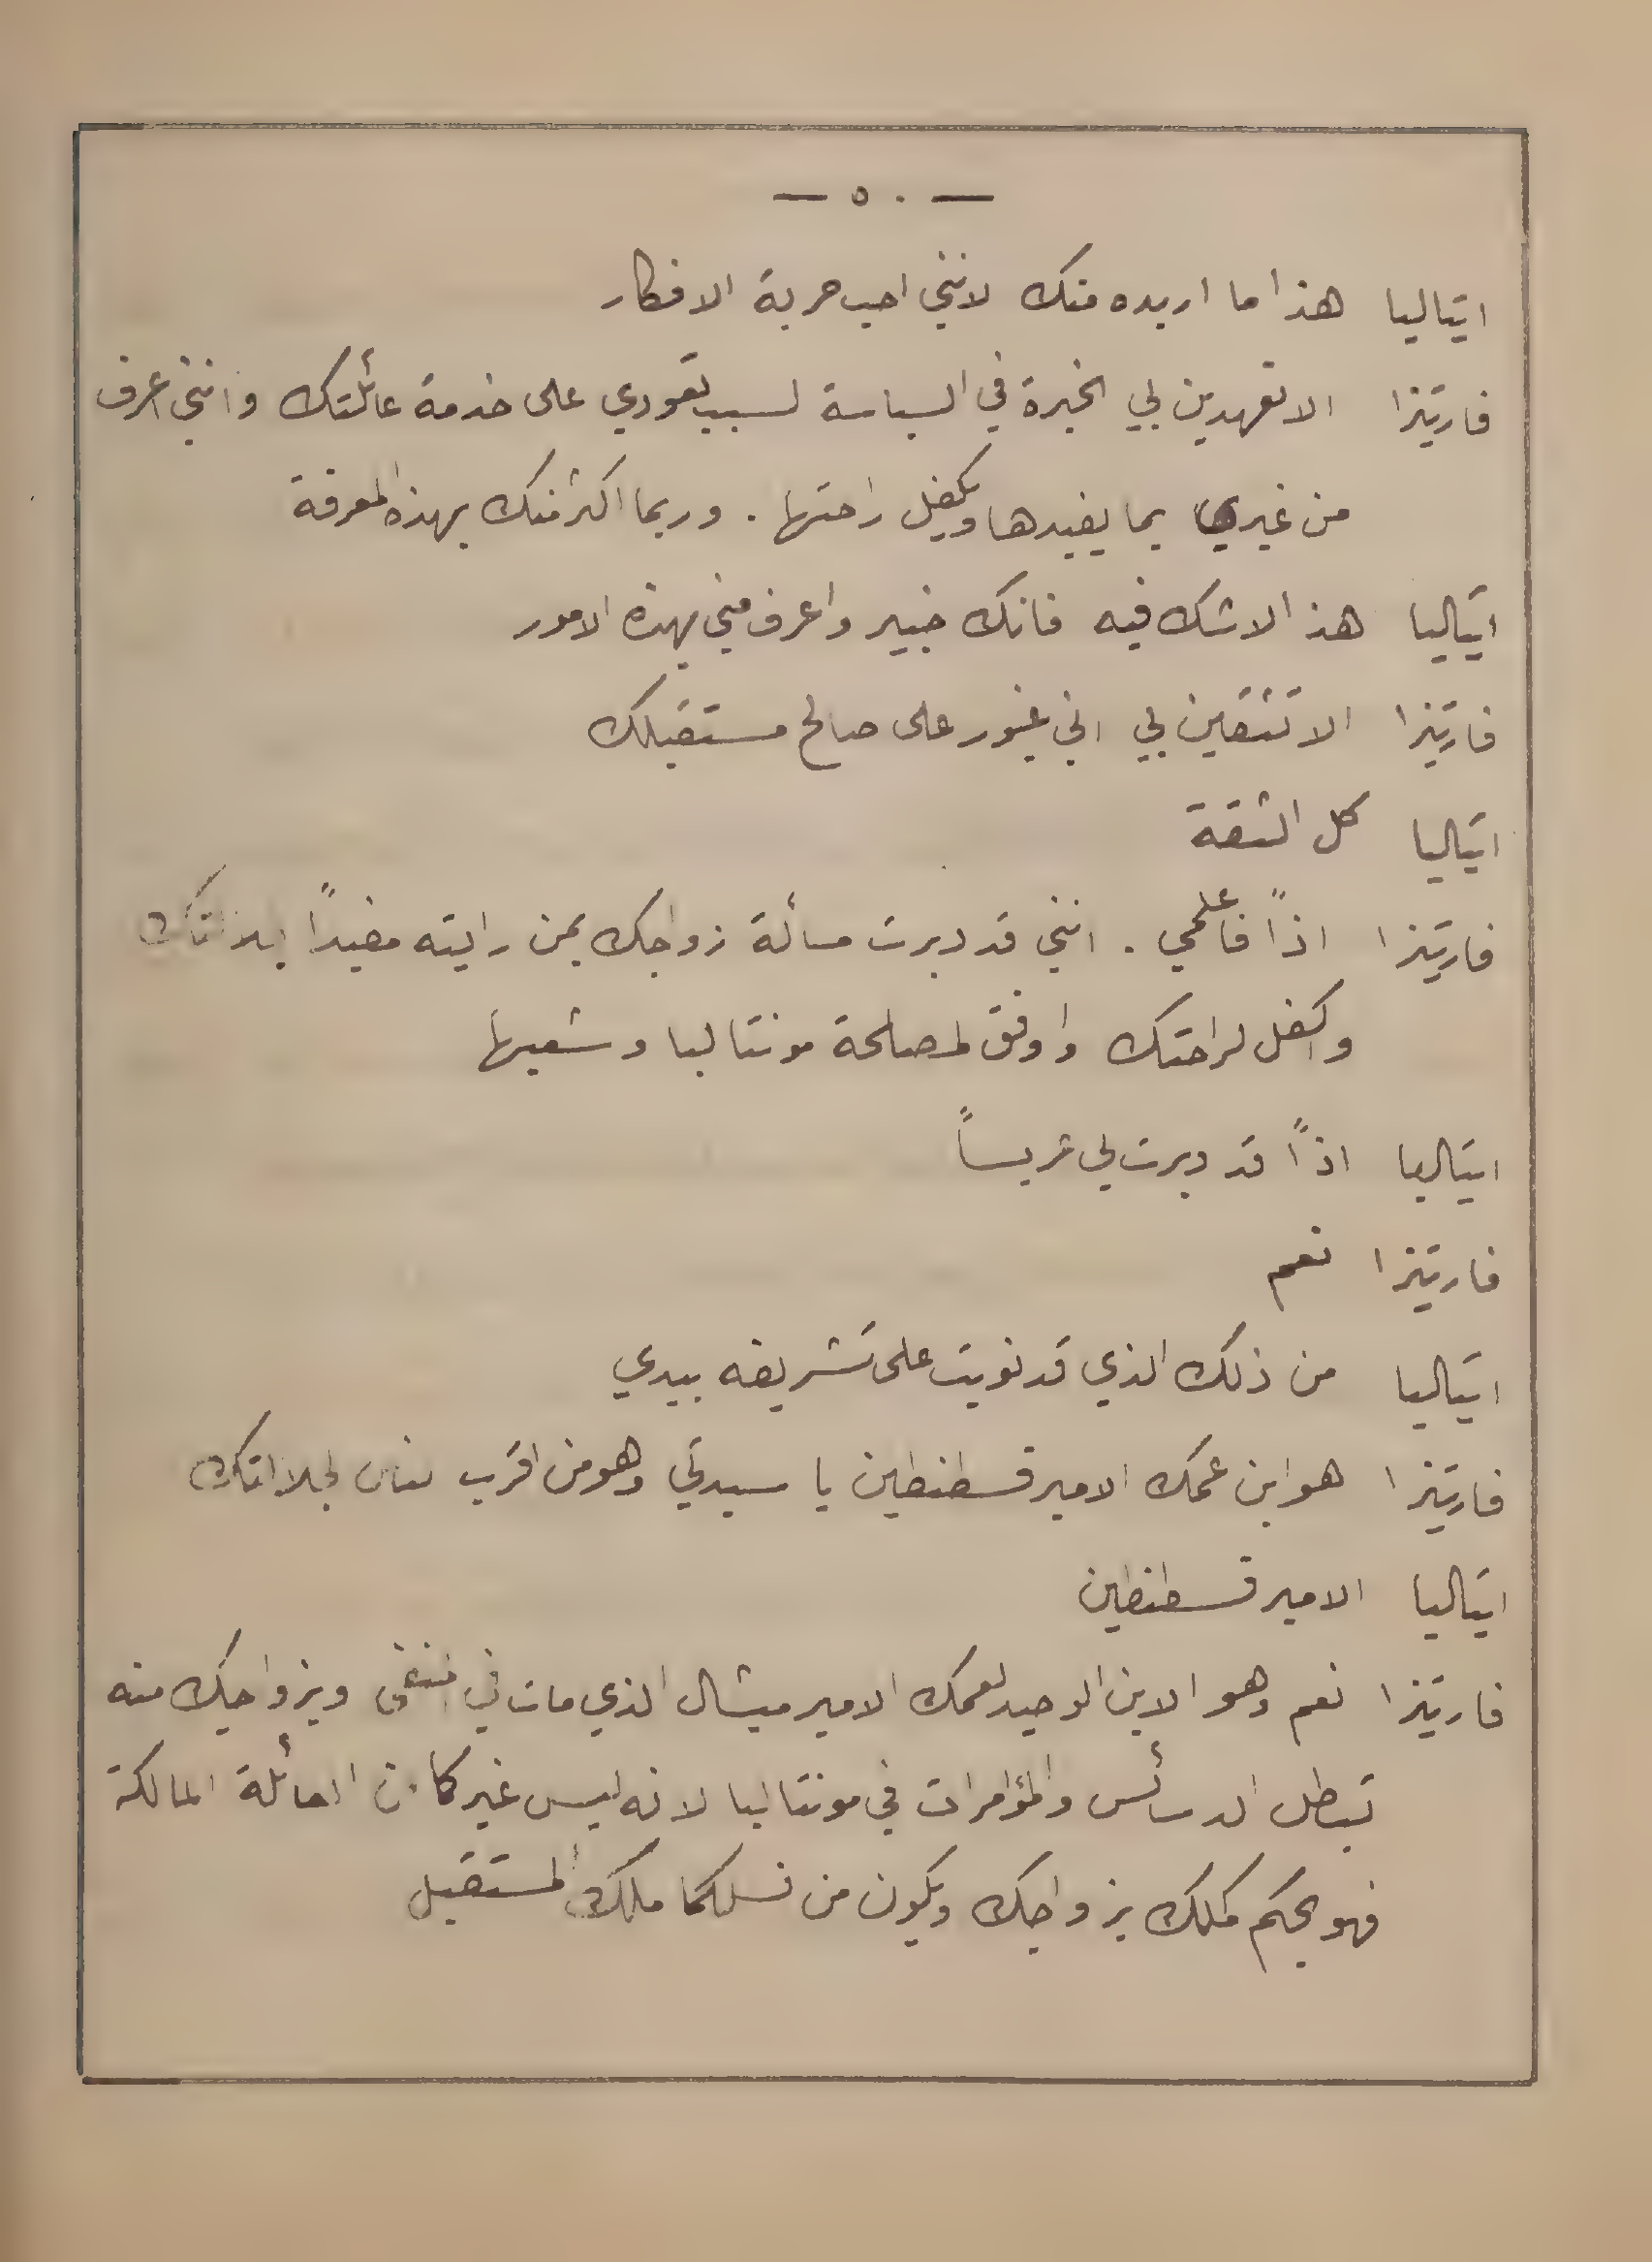 — ٥٠ —
ايتاليا هذا ما اريده منك لانني احب حرية الافكار
فاريتزا الا تعهدين بي الخبرة في السياسة لسبب تعودي على خدمة عائلتك وانني اعرف
من غيري بما يفيدها ويكفل راحتها . وربما اكثر منك بهذه المعرفة
ايتاليا هذا لاشك فيه فانك خبير واعرف مني بهذه الامور
فاريتزا الا تثقين بي اني غيور على صالح مستقبلك
ايتاليا كل الثقة
فاريتزا اذاً فاعلمي . انني قد دبرت مسألة زواجك بمن رايته مفيداً
واكفل لراحتك واوفق لمصلحة مونتاليا وشعبها
ايتاليا اذاً قد دبرت لي عريساً
فاريتزا نعم
ايتاليا من ذلك الذي قد نويت على تشريفه بيدي
فاريتزا هو ابن عمك الامير قسطنطين يا سيدتي وهو من اقرب لجلالتك
ايتاليا الامير قسطنطين
فاريتزا نعم وهو الابن الوحيد لعمك الامير ميشال الذي مات في المنفى وبزواجك منه
تبطل الدسائس والمؤامرات في مونتاليا لانه ليس غيركما من العائلة المالكة
فهو يحكم كملك بزواجك ويكون من نسلكما ملك المستقبل